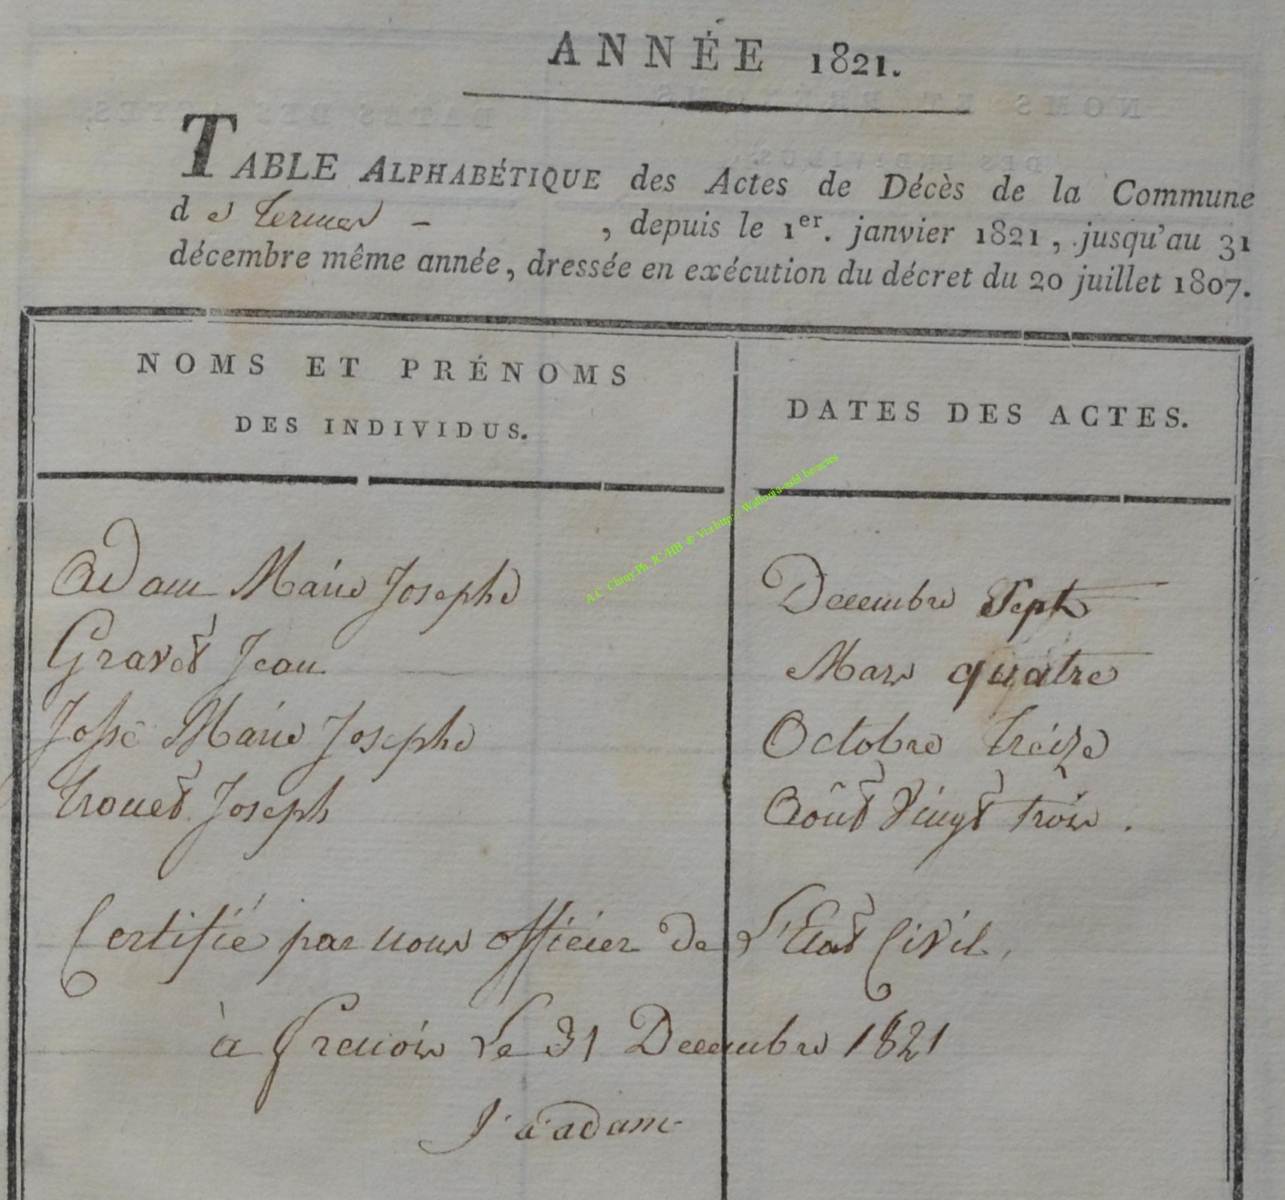 ANNÉE 1821.
TABLE ALPHABÉTIQUE des Actes de Décès de la Commune
de Termes - , depuis le 1er. janvier 1821, jusqu'au 31
décembre même année, dressée en exécution du décret du 20 juillet 1807.
NOMS ET PRÉNOMS
DES INDIVIDUS.
DATES DES ACTES.
Adam Marie Josephe Decembre Sept
Gravet Jean Mars quatre
Josse Marie Josephe Octobre treize
trouet Joseph Août Vingt trois.
Certifié par nous officier de L'Etat Civil,
à frenois Le 31 Decembre 1821
J. a. adam